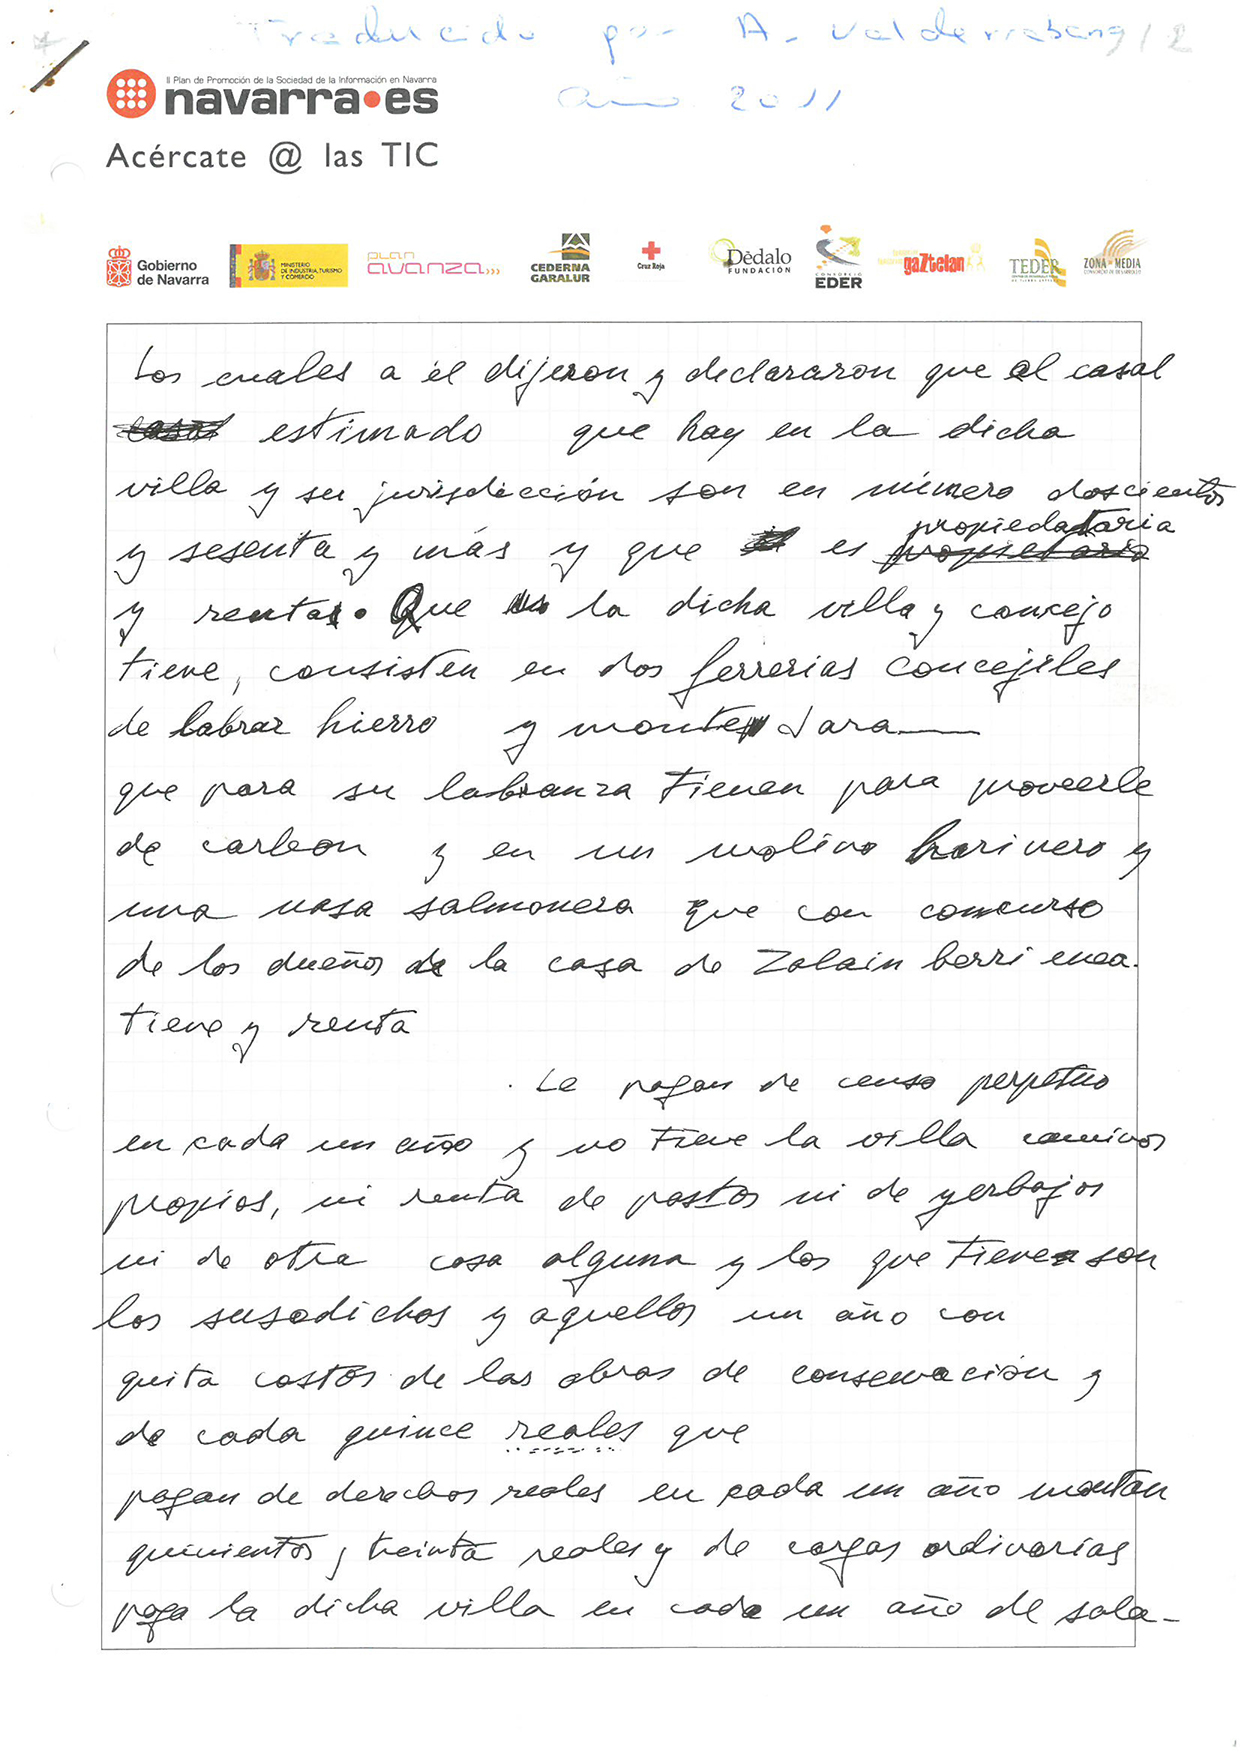 Traducido por A. Valderrabano / 2
año 2011
II Plan de Promoción de la Sociedad de la Información en Navarra
navarra•es
Acércate @ las TIC
Gobierno de Navarra
MINISTERIO DE INDUSTRIA, TURISMO Y COMERCIO
PLAN avanza
CEDERNA GARALUR
Cruz Roja
Dèdalo FUNDACIÓN
CONSORCIO EDER
gaztelan
TEDER
ZONA MEDIA
Los cuales a él dijeron y declararon que el casal
estimado que hay en la dicha
villa y su jurisdicción son en número doscientos
y sesenta y más y que es propiedataria
y rentas. Que la dicha villa y concejo
tiene, consisten en dos ferrerias concejiles
de labrar hierro y montes Jara
que para su labranza tienen para proveerle
de carbon y en un molino harinero y
una nasa salmonera que con concurso
de los dueños de la casa de Zalain berri enea.
tiene y renta
. Le pagan de censo perpetuo
en cada un año y no tiene la villa caminos
propios, ni renta de pastos ni de yerbajos
ni de otra cosa alguna y los que tiene son
los susodichos y aquellos un año con
quita costos de las obras de conservación y
de cada quince reales que
pagan de derechos reales en cada un año montan
quinientos y treinta reales y de cargas ordinarias
paga la dicha villa en cada un año de sala-